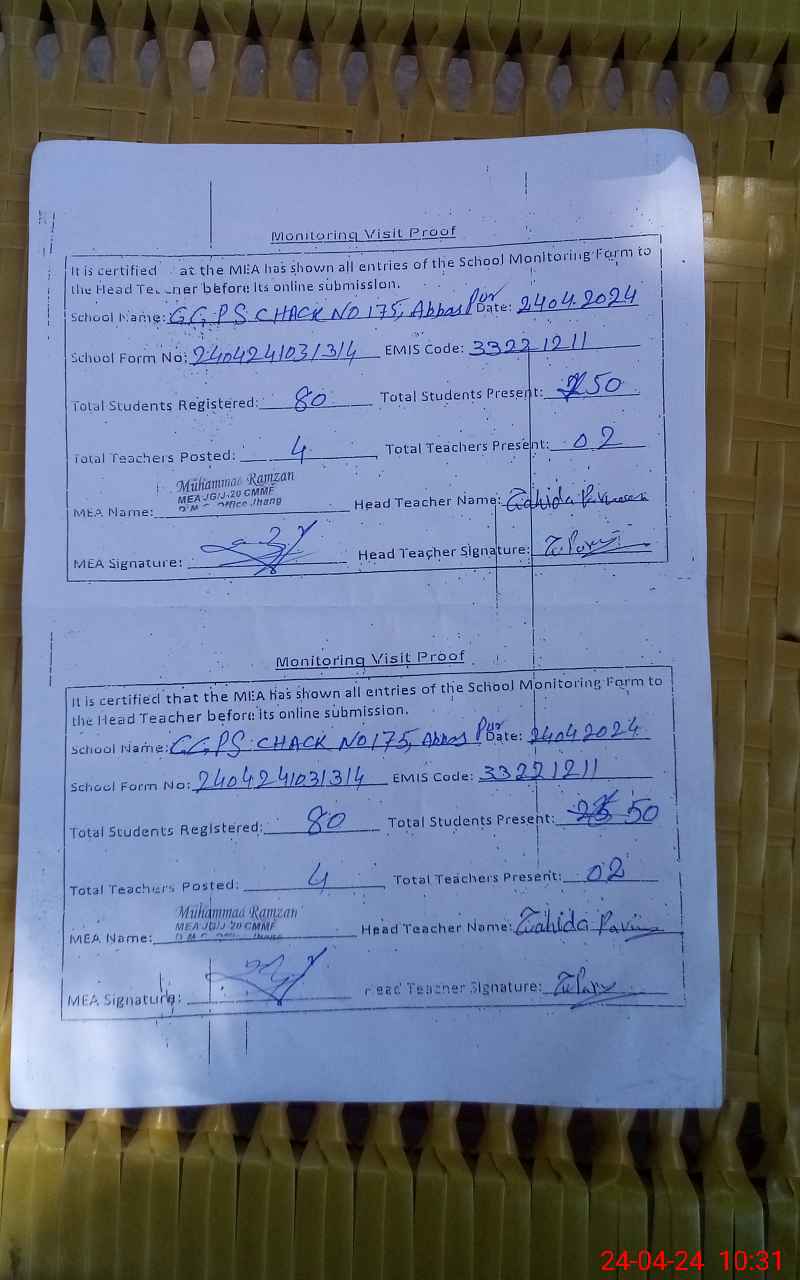 Monitoring Visit Proof
It is certified at the MEA has shown all entries of the School Monitoring Form to
the Head before its online submission.
School Name: GGPS CHACK NO 175, Abbas Pur Date: 24042024
School Form No: 2404241031314 EMIS Code: 33221211
Total Students Registered: 80 Total Students Present: 50
Total Teachers Posted: 4 Total Teachers Present: 02
Muhammad Ramzan
MEA JG/J-20 CMMF
Office Jhang
MEA Name: Head Teacher Name: Zahida
MEA Signature: Head Teacher Signature:
Monitoring Visit Proof
It is certified that the MEA has shown all entries of the School Monitoring Form to
the Head Teacher before its online submission.
School Name: GGPS CHACK NO 175, Abbas Pur Date: 24042024
School Form No: 2404241031314 EMIS Code: 33221211
Total Students Registered: 80 Total Students Present: 50
Total Teachers Posted: 4 Total Teachers Present: 02
Muhammad Ramzan
MEA JG/J-20 CMMF
MEA Name: Head Teacher Name: Zahida
MEA Signature: Head Teacher Signature:
24-04-24 10:31